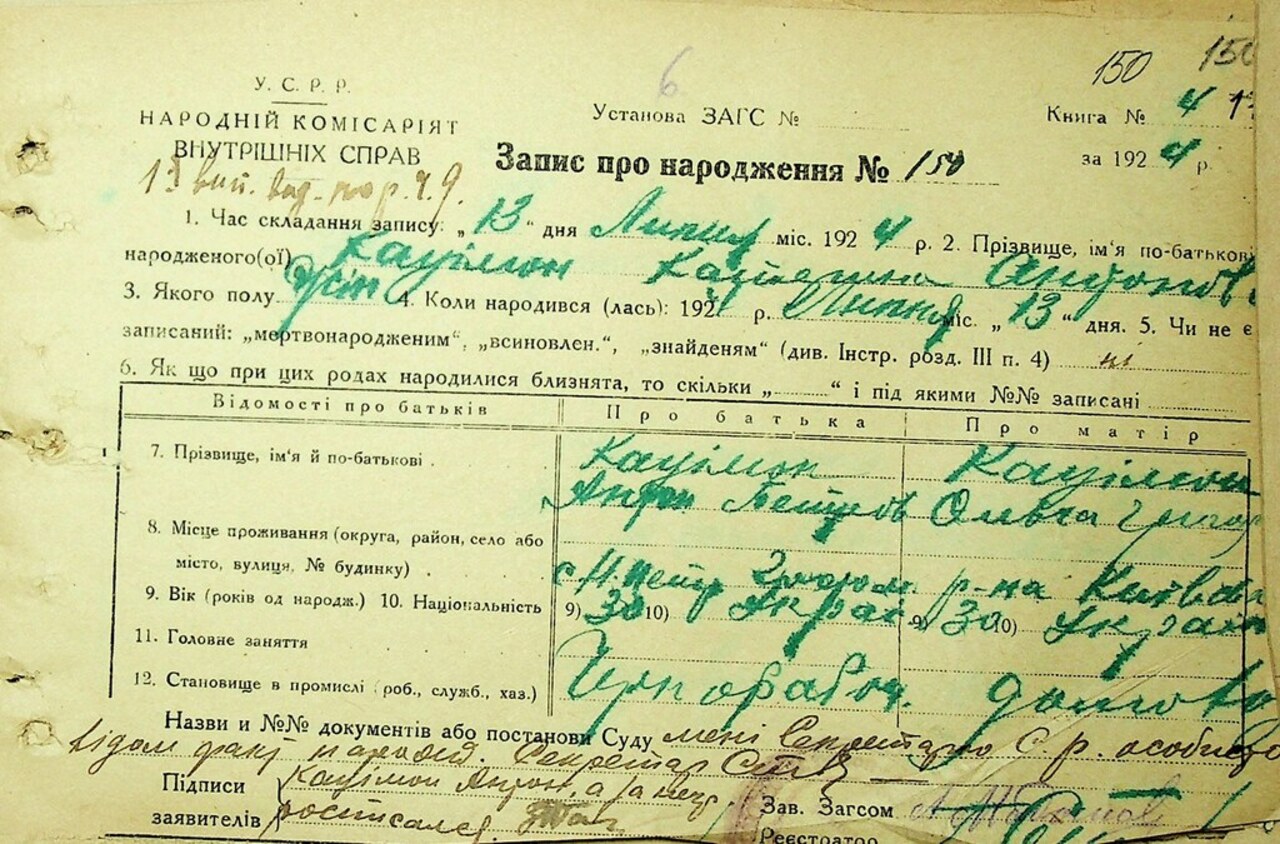 150 150
6
У. С. Р. Р.
НАРОДНІЙ КОМІСАРІЯТ
ВНУТРІШНІХ СПРАВ
Установа ЗАГС №
Книга № 4
Запис про народження № 150
за 1924 р.
1. Час складання запису: „13“ дня Липня міс. 1924 р. 2. Прізвище, ім'я по-батькові
народженого(ої) Катерина Антонов
3. Якого полу жін 4. Коли народився (лась): 1924 р. Липня міс. „13“ дня. 5. Чи не є
записаний: „мертвонародженим“, „всиновлен.“, „знайденям“ (див. Інстр. розд. III п. 4) ні
6. Як що при цих родах народилися близнята, то скільки „ “ і під якими №№ записані
Відомості про батьків Про батька Про матір
7. Прізвище, ім'я й по-батькові
Антон Петров Ольга Григор
8. Місце проживання (округа, район, село або
місто, вулиця, № будинку)
с. Н. Петр р-на Київськ
9. Вік (років од народж.) 10. Національність 9) 30 10) Украї 9) 30 10) Украї
11. Головне заняття
12. Становище в промислі (роб., служб., хаз.)
Назви и №№ документів або постанови Суду мені Секретарю С. р. особисто
відом факт народж. Секретар
Підписи Антон, а за него
заявителів росписался
Зав. Загсом
Реєстратор